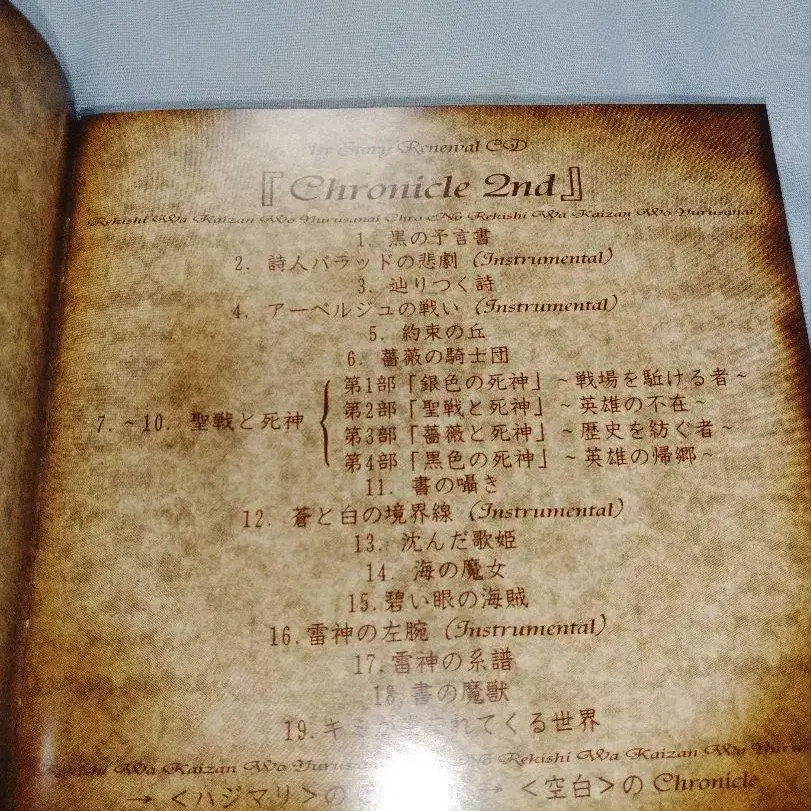 1st Story Renewal CD
『Chronicle 2nd』
Rekishi Wa Kaizan Wo Yurusanai Chro No Rekishi Wa Kaizan Wo Yurusanai
1. 黒の予言書
2. 詩人バラッドの悲劇 (Instrumental)
3. 辿りつく詩
4. アーベルジュの戦い (Instrumental)
5. 約束の丘
6. 薔薇の騎士団
7.~10. 聖戦と死神
第1部「銀色の死神」~戦場を駈ける者~
第2部「聖戦と死神」~英雄の不在~
第3部「薔薇と死神」~歴史を紡ぐ者~
第4部「黒色の死神」~英雄の帰郷~
11. 書の囁き
12. 蒼と白の境界線 (Instrumental)
13. 沈んだ歌姫
14. 海の魔女
15. 碧い眼の海賊
16. 雷神の左腕 (Instrumental)
17. 雷神の系譜
18. 書の魔獣
19. キミが れてくる世界
Rekishi Wa Kaizan Wo Yurusanai No Rekishi Wa Kaizan Wo
→ <ハジマリ>の → <空白>の Chronicle